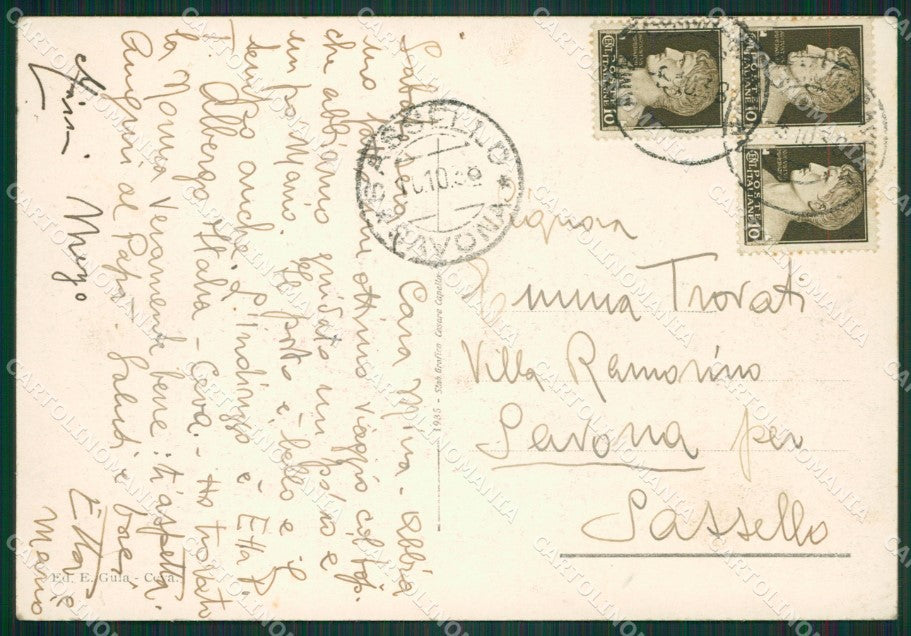 Sabato sera. Cara Mina - abbia-
mo fatto un ottimo viaggio col topi
che abbiamo guidato un pò io e
un pò Mario. Il posto è bello e il
tempo anche. L'indirizzo è Etta P.
Albergo Italia - Ceva. Ho trovato
la Nonna veramente bene: t'aspetta.
Auguri al Papà. Saluti e baci
Etta e
Mario
SASSELLO
10.38
SAVONA
POSTE ITALIANE
10
POSTE ITALIANE
10
POSTE ITALIANE
10
Signora
Emma Trovati
Villa Ramorino
Savona per
Sassello
1935 - Stab Grafico Cesare Capello
Ed. E. Gula - Ceva.
CARTOLINOMANIA